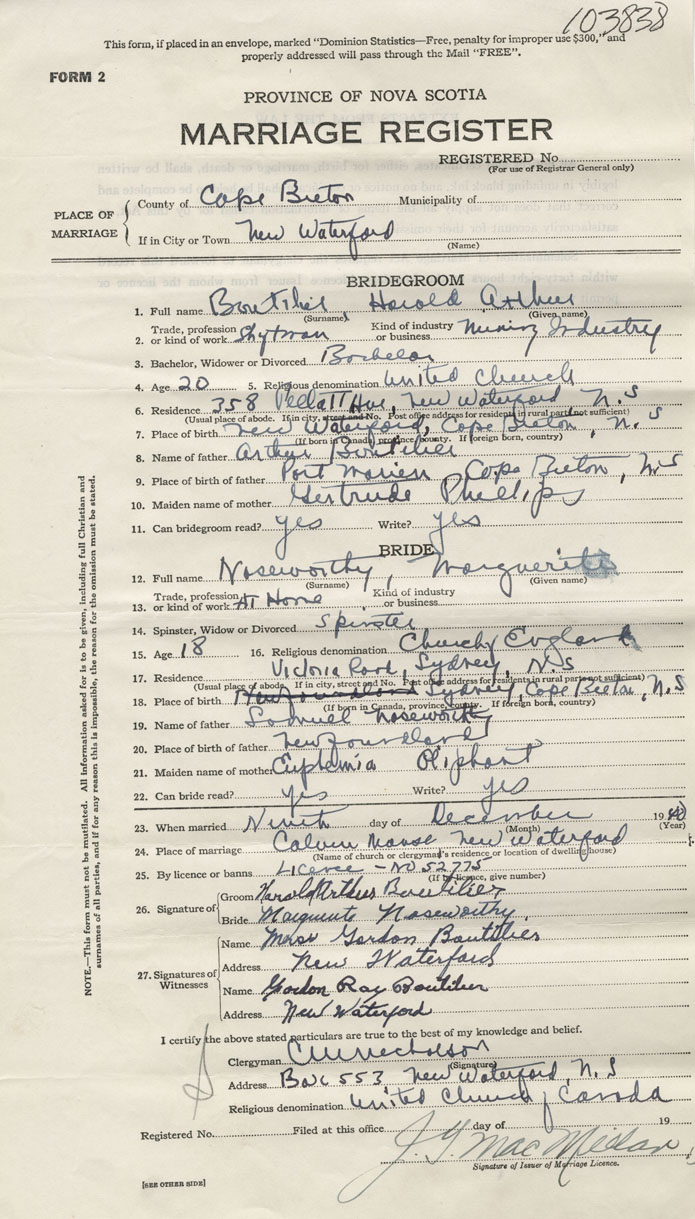 103838
This form, if placed in an envelope, marked "Dominion Statistics—Free, penalty for improper use $300," and
properly addressed will pass through the Mail "FREE".
FORM 2
PROVINCE OF NOVA SCOTIA
MARRIAGE REGISTER
REGISTERED No.
(For use of Registrar General only)
PLACE OF MARRIAGE
County of Cape Breton Municipality of
If in City or Town New Waterford
(Name)
BRIDEGROOM
1. Full name Boutilier, Harold Arthur
(Surname) (Given name)
2. Trade, profession or kind of work Kind of industry or business Mining Industry
3. Bachelor, Widower or Divorced Bachelor
4. Age 20 5. Religious denomination United Church
6. Residence 358 Pellatt Ave, New Waterford N.S
(Usual place of abode. If in city, street and No. Post office address for residents in rural parts not sufficient)
7. Place of birth New Waterford, Cape Breton, N.S
(If born in Canada, province, county. If foreign born, country)
8. Name of father Arthur Boutilier
9. Place of birth of father Port Morien Cape Breton, N.S
10. Maiden name of mother Gertrude Phillips
11. Can bridegroom read? yes Write? yes
BRIDE
12. Full name Noseworthy, Marguerite
(Surname) (Given name)
13. Trade, profession or kind of work At Home Kind of industry or business
14. Spinster, Widow or Divorced Spinster
15. Age 18 16. Religious denomination Church of England
17. Residence Victoria Road, Sydney, N.S
(Usual place of abode. If in city, street and No. Post office address for residents in rural parts not sufficient)
18. Place of birth Newfoundland Sydney, Cape Breton, N.S
(If born in Canada, province, county. If foreign born, country)
19. Name of father Samuel Noseworthy
20. Place of birth of father Newfoundland
21. Maiden name of mother Euphemia Oliphant
22. Can bride read? yes Write? yes
23. When married Ninth day of December 1940
(Month) (Year)
24. Place of marriage Calvin Manse New Waterford
(Name of church or clergyman's residence or location of dwelling house)
25. By licence or banns Licence - No 52775
(If by licence, give number)
26. Signature of
Groom Harold Arthur Boutilier
Bride Marguerite Noseworthy.
27. Signatures of Witnesses
Name Mrs Gordon Boutilier
Address New Waterford
Name Gordon Ray Boutilier
Address New Waterford
I certify the above stated particulars are true to the best of my knowledge and belief.
Clergyman C M Nicholson
(Signature)
Address Box 553, New Waterford, N.S
Religious denomination United Church of Canada
Registered No. Filed at this office day of 19
J. G. MacMillan
Signature of Issuer of Marriage Licence.
[SEE OTHER SIDE]
NOTE.—This form must not be mutilated. All information asked for is to be given, including full Christian and
surnames of all parties, and if for any reason this is impossible, the reason for the omission must be stated.